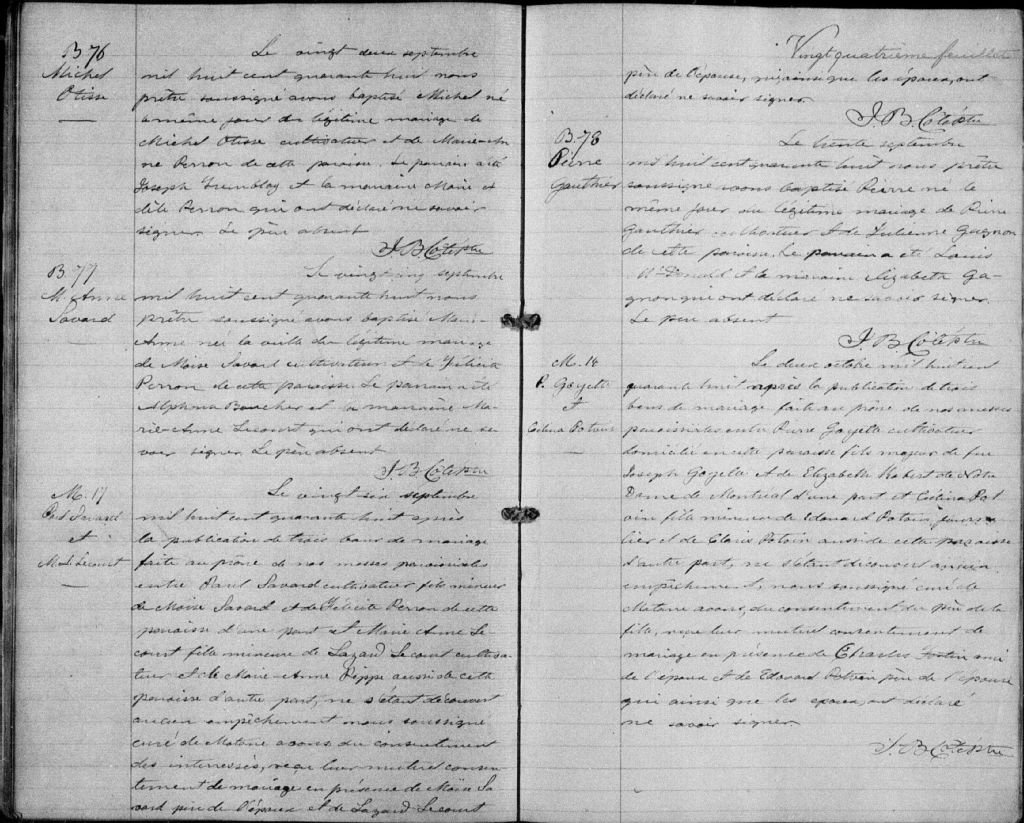 B 76
Michel
Otisse
Le vingt deux septembre
mil huit cent quarante huit nous
prêtre soussigné avons baptisé Michel né
le même jour du légitime mariage de
Michel Otisse cultivateur et de Marie-An
ne Perron de cette paroisse. Le parrain a été
Joseph Tremblay et la marraine Marie
Perron qui ont déclaré ne savoir
signer. Le père absent
J. B. Côté ptre
B. 77
M. Anne
Savard
Le vingt cinq septembre
mil huit cent quarante huit nous
prêtre soussigné avons baptisé Marie-
Anne née la veille du légitime mariage
de Moïse Savard cultivateur et de Félicité
Perron de cette paroisse. Le parrain a été
Boucher et la marraine Ma-
rie-Anne Lecourt qui ont déclaré ne sa
voir signer. Le père absent
J. B. Côté ptre
M. 17
Paul Savard
et
M. A. Lecourt
Le vingt six septembre
mil huit cent quarante huit après
la publication de trois bans de mariage
faite au prône de nos messes paroissiales
entre Paul Savard cultivateur fils mineur
de Moïse Savard et de Félicité Perron de cette
paroisse d'une part et Marie Anne Le
court fille mineure de Lazard Lecourt cultiva-
teur et de Marie-Anne Pippe aussi de cette
paroisse d'autre part, ne s'étant découvert
aucun empêchement nous soussigné
curé de Matane avons, du consentement
des intéressés, reçu leur mutuel consen-
tement de mariage en présence de Moïse Sa
vard père de l'époux et de Lazard Lecourt
Vingt quatrième feuillet
père de l'épouse, qui ainsi que les époux, ont
déclaré ne savoir signer.
J. B. Côté ptre
B. 78
Pierre
Gauthier
Le trente septembre
mil huit cent quarante huit nous prêtre
soussigné avons baptisé Pierre né le
même jour du légitime mariage de Pierre
Gauthier cultivateur et de Julienne Gagnon
de cette paroisse. Le parrain a été Louis
McDonald et la marraine Elizabeth Ga-
gnon qui ont déclaré ne savoir signer.
Le père absent
J. B. Côté ptre
M. 18
P. Goyette
et
Celina Potvin
Le deux octobre mil huit cent
quarante huit après la publication de trois
bans de mariage faite au prône de nos messes
paroissiales entre Pierre Goyette cultivateur
domicilié en cette paroisse fils majeur de feu
Joseph Goyette et de Elizabeth Robert de Notre
Dame de Montréal d'une part et Célina Pot
vin fille mineure de Edouard Potvin journa
lier et de Claris Potvin aussi de cette paroisse
d'autre part, ne s'étant découvert aucun
empêchement, nous soussigné curé de
Matane avons, du consentement du père de la
fille, reçu leur mutuel consentement de
mariage en présence de Charles Fortin ami
de l'époux et de Edouard Potvin père de l'épouse
qui ainsi que les époux, ont déclaré
ne savoir signer
J. B. Côté ptre